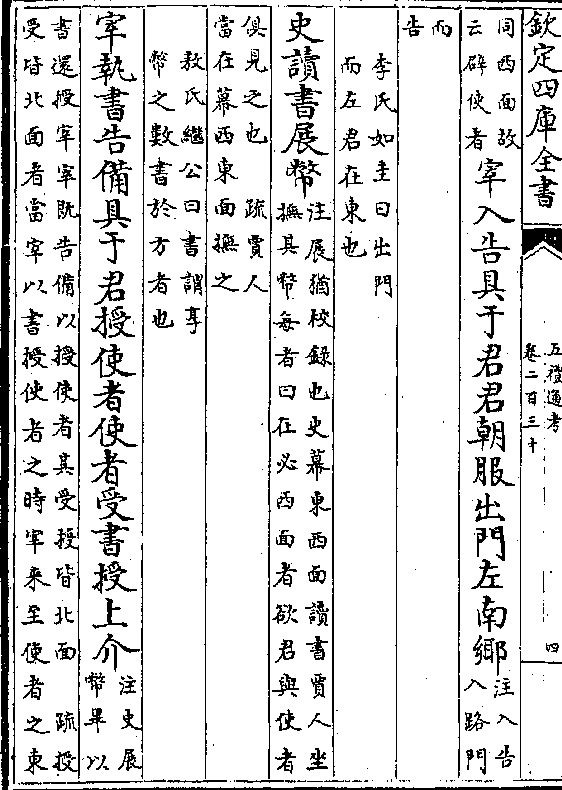 欽定四庫全書
五禮通考
卷二百三十
四
同西面故
云辟使者
宰入告具于君君朝服出門左南鄉
注入告
入路門
而
告
李氏如圭曰出門
而左君在東也
史讀書展幣
注展猶校録也史幕東西面讀書賈人坐
撫其幣每者曰在必西面者欲君與使者
俱見之也 疏賈人
當在幕西東面撫之
敖氏繼公曰書謂享
幣之數書於方者也
宰執書告備具于君授使者使者受書授上介
注史展
幣畢以
書還授宰宰既告備以授使者其受授皆北面 疏授
受皆北面者當宰以書授使者之時宰來至使者之東